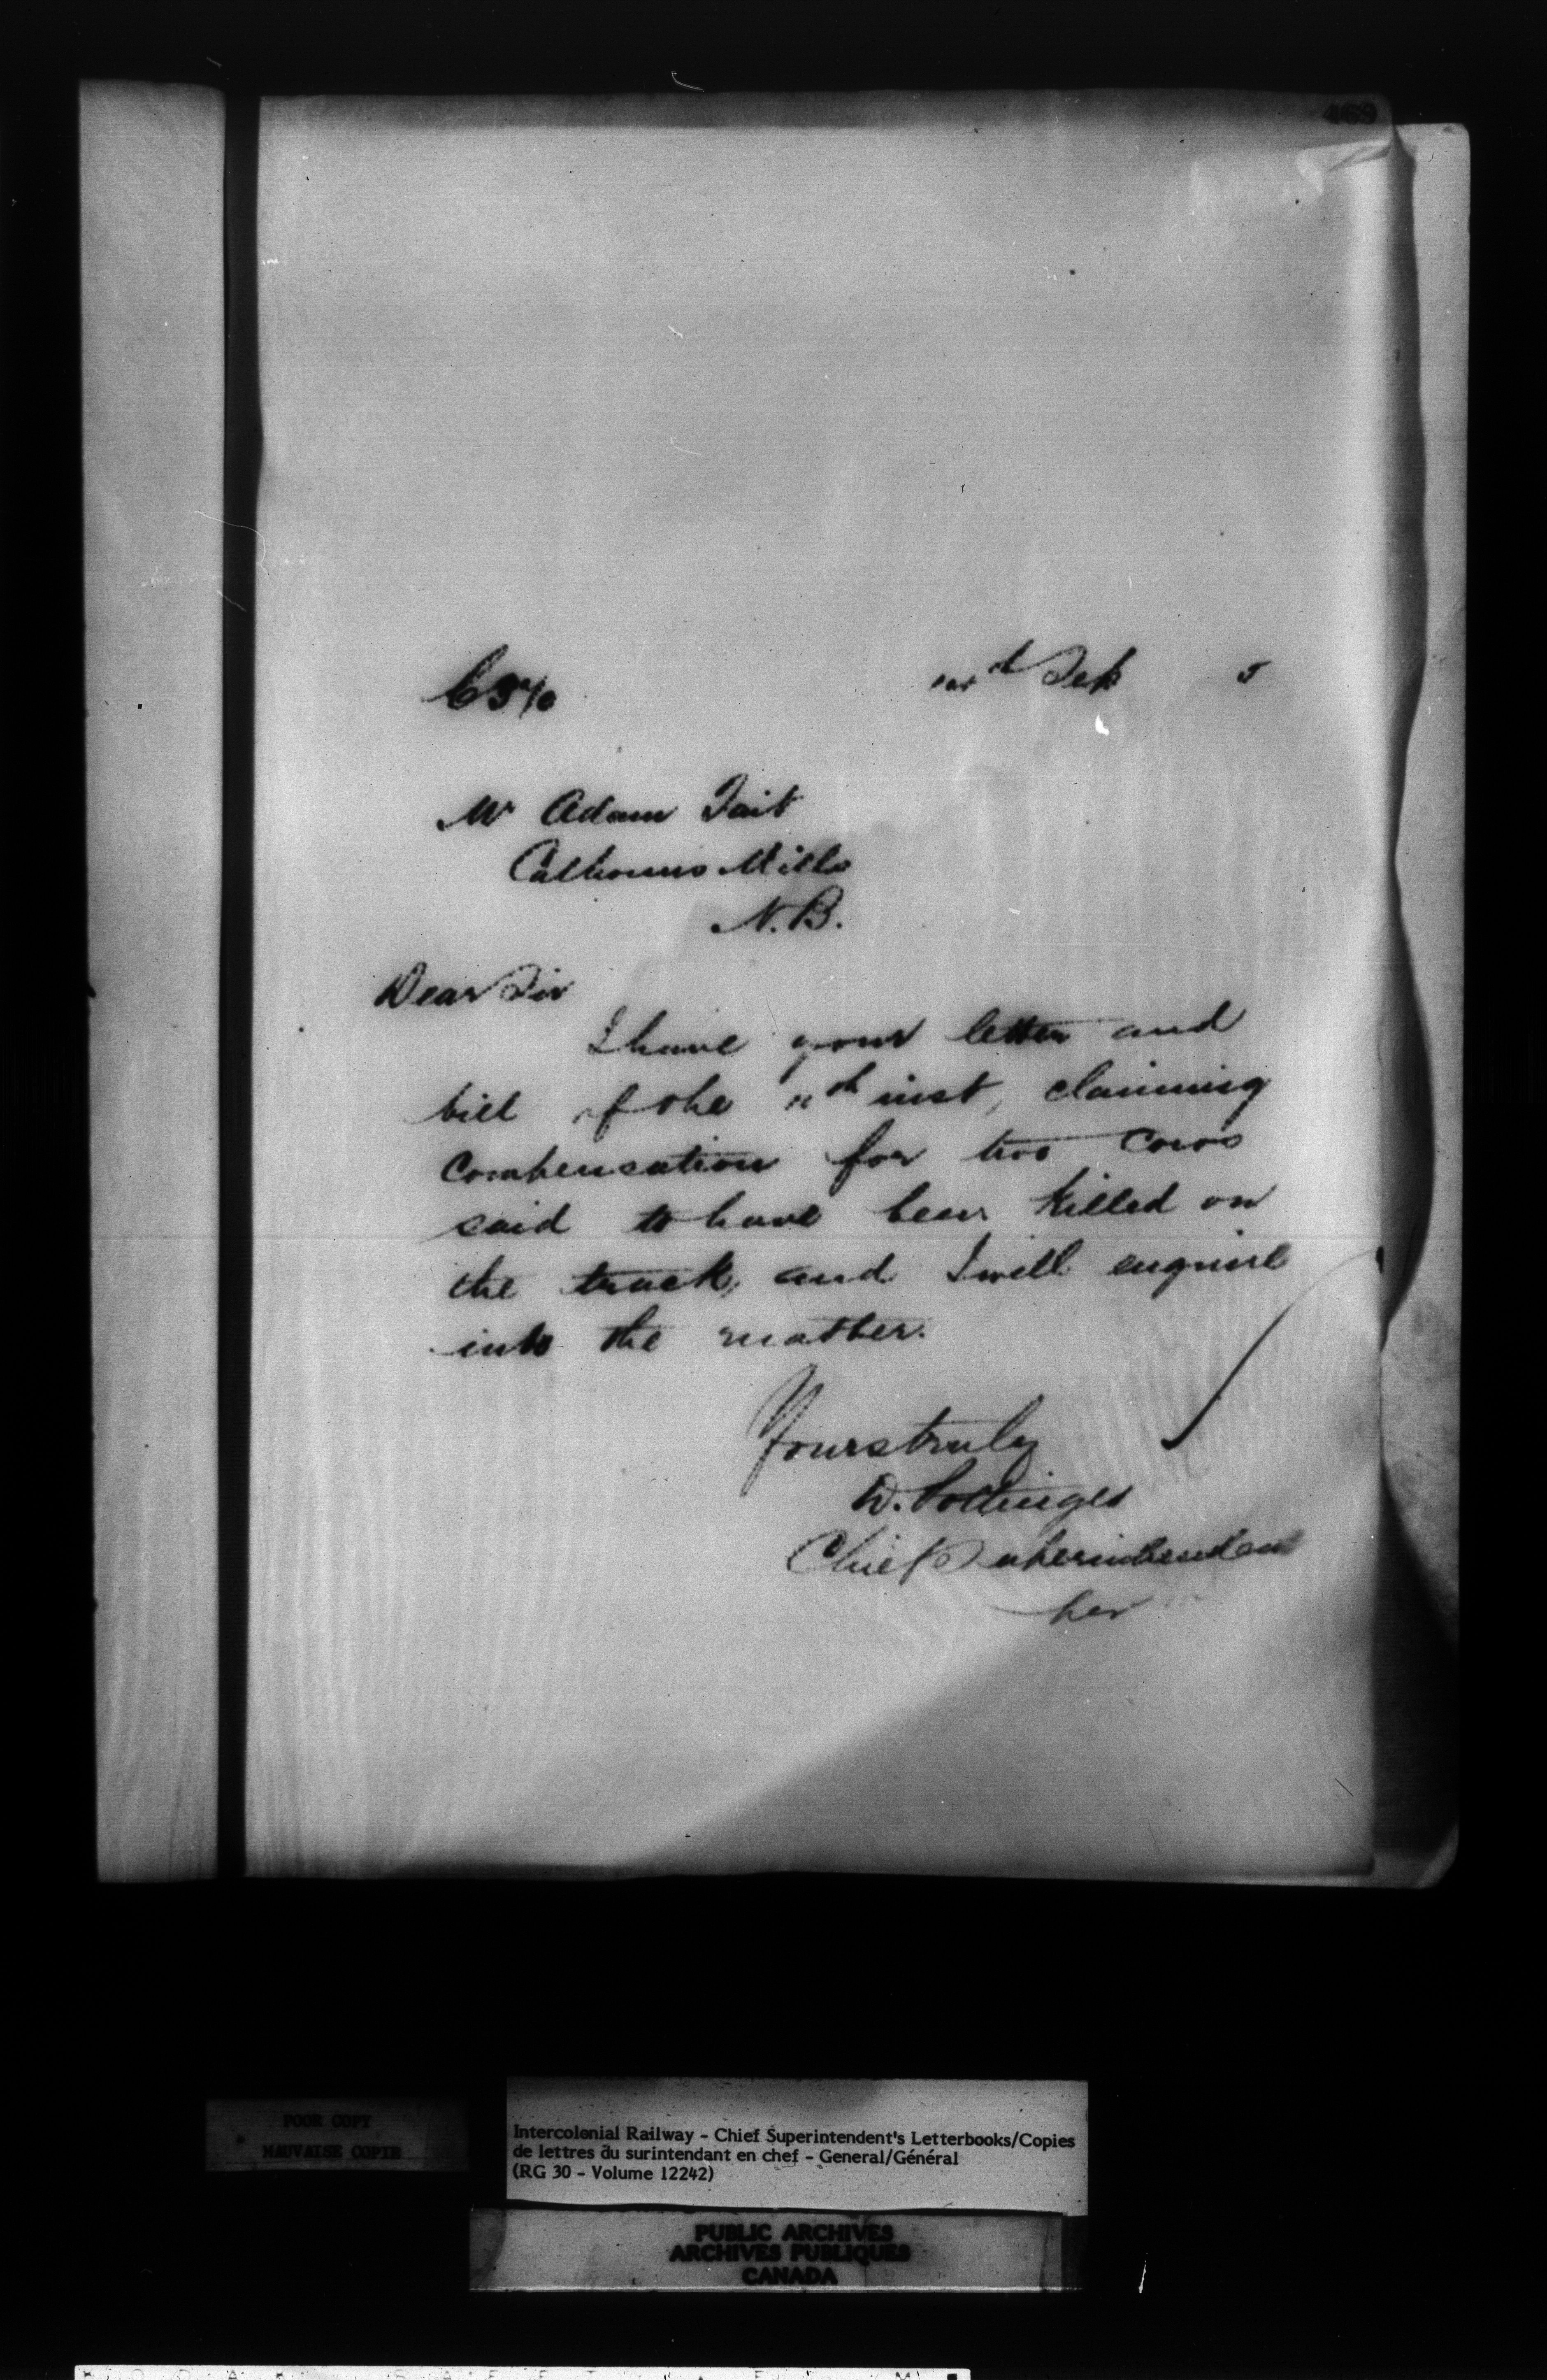 469
Sep 5
Mr Adam Tait
Calhouns Mills
N.B.
Dear Sir
I have your letter and
bill of the 11th inst, claiming
compensation for two cows
said to have been killed on
the track, and I will enquire
into the matter.
Yours truly
D. Pottinger
Chief Superintendent
per
POOR COPY
MAUVAISE COPIE
Intercolonial Railway - Chief Superintendent's Letterbooks/Copies
de lettres du surintendant en chef - General/Général
(RG 30 - Volume 12242)
PUBLIC ARCHIVES
ARCHIVES PUBLIQUES
CANADA